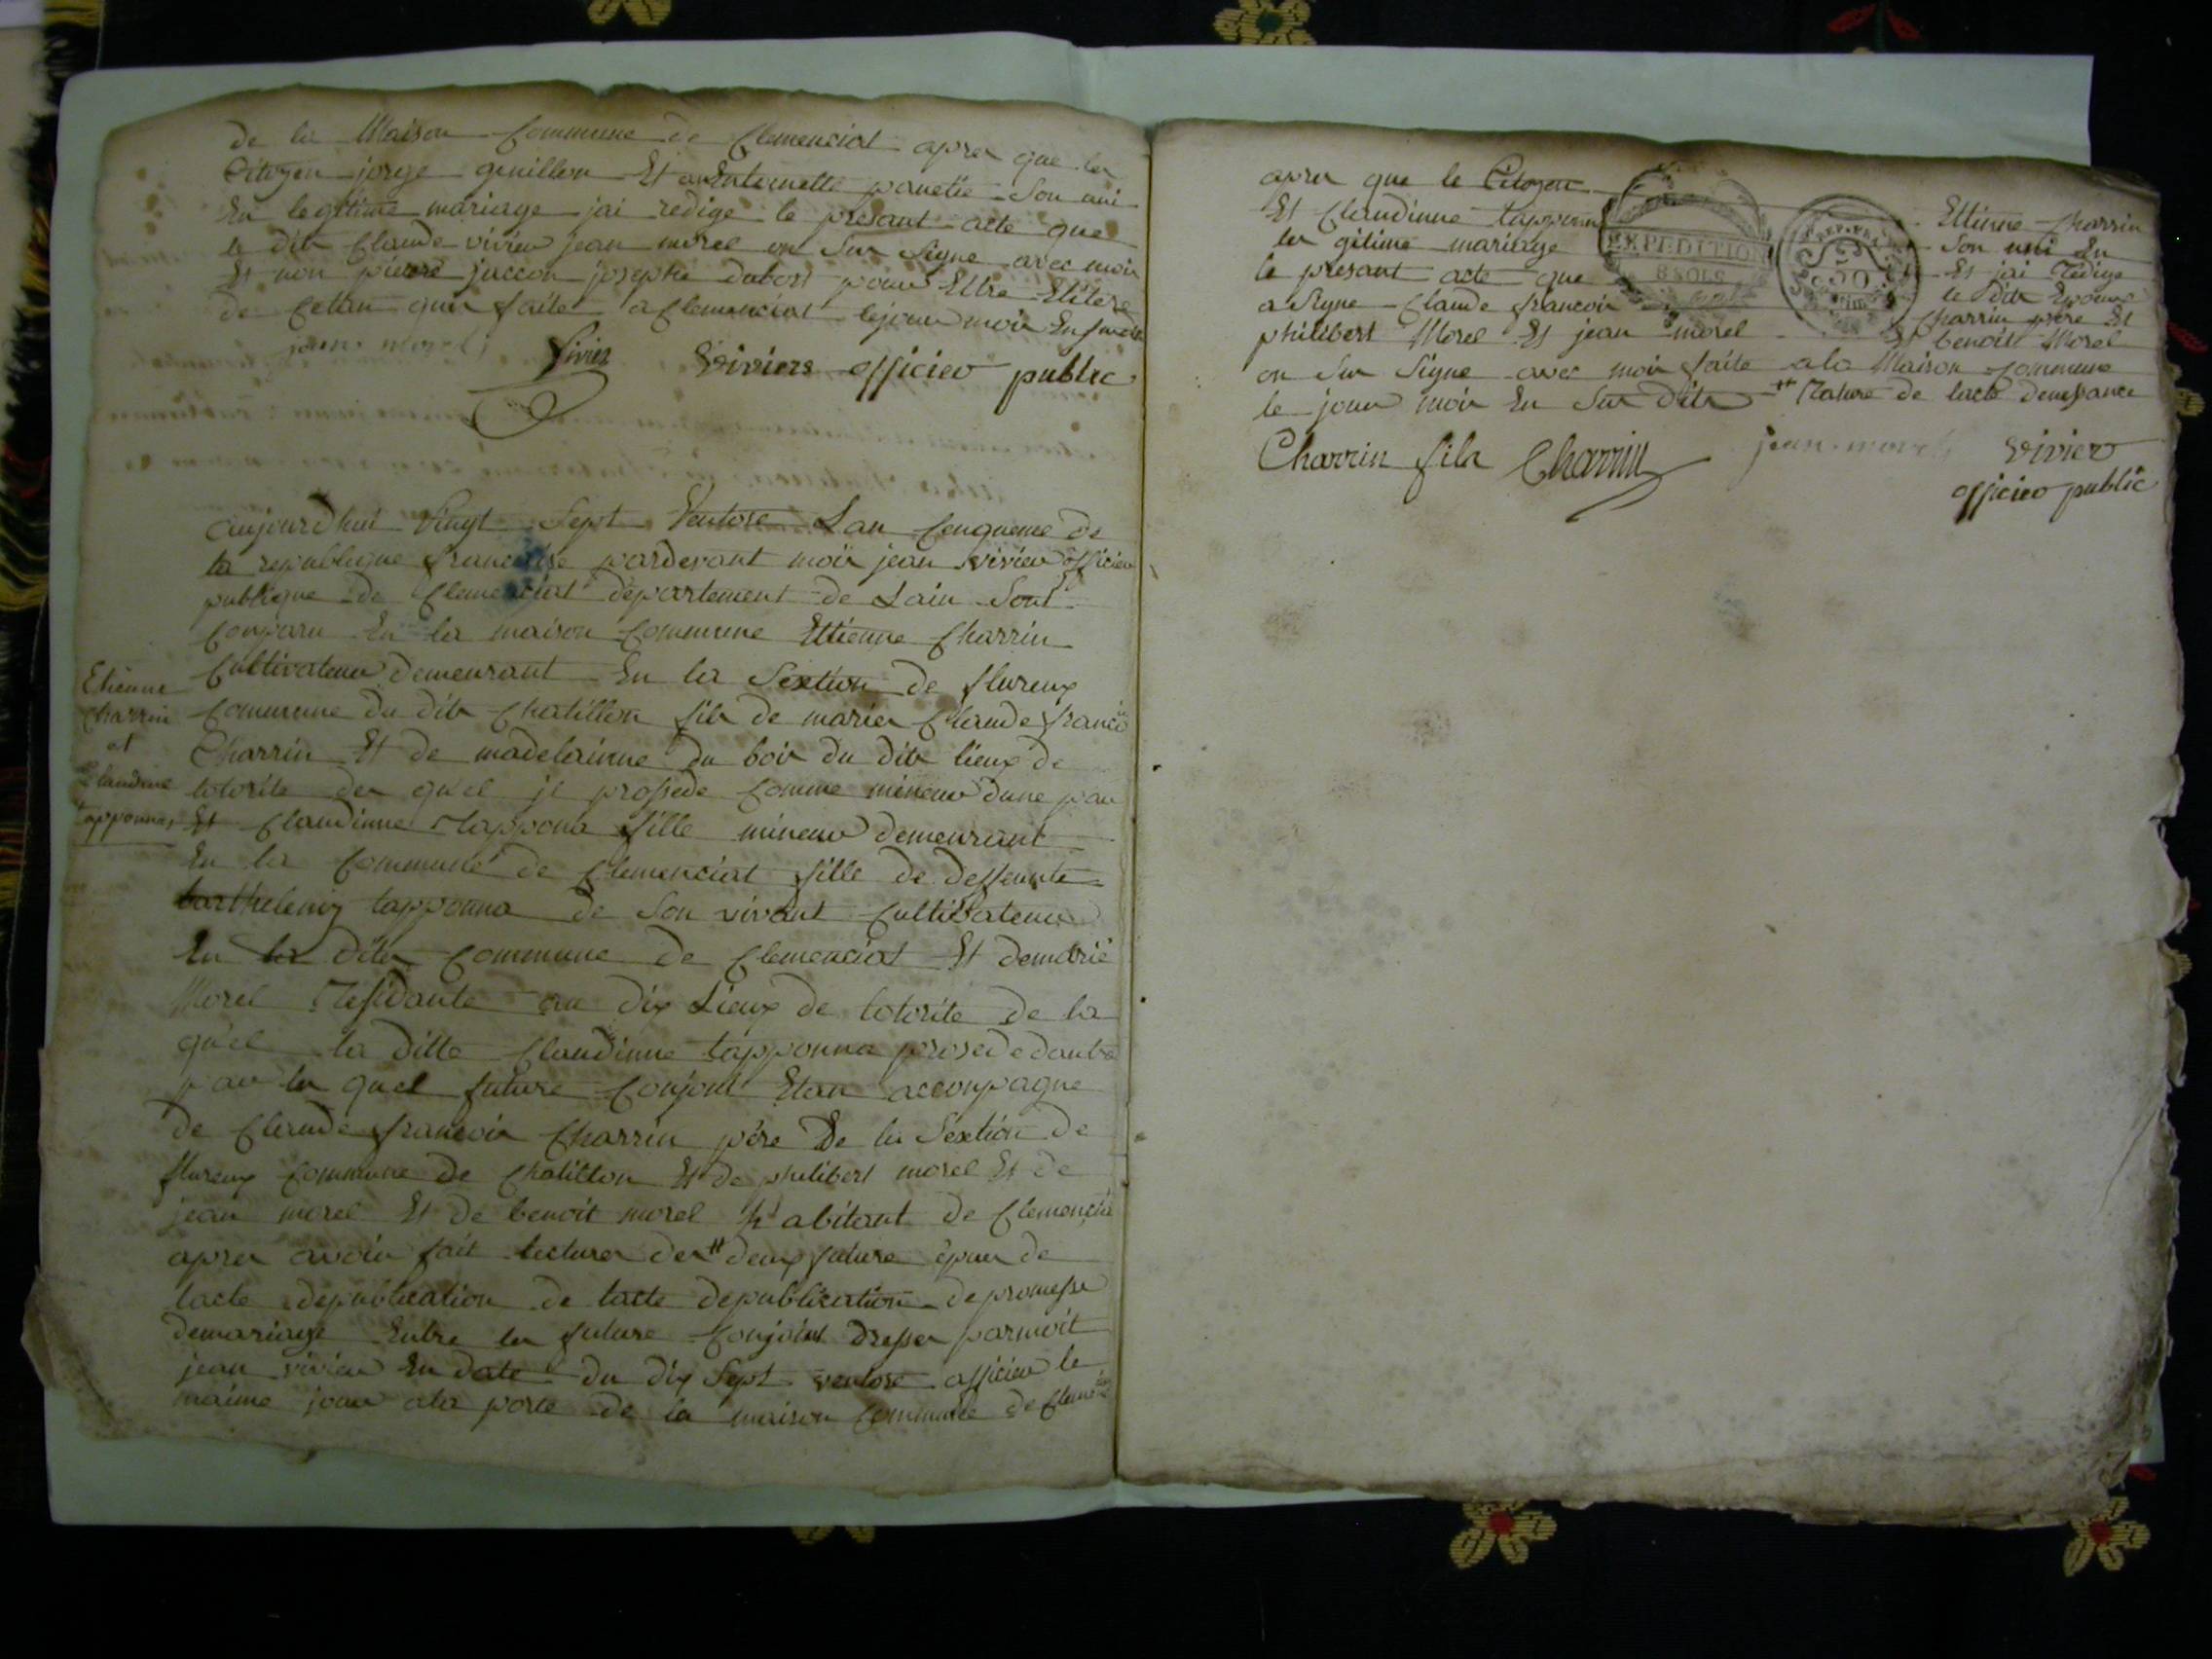 de la Maison Commune de Clemenciat apres que les
Citoyen jorge genillon Et antenternette panetie Son uni
En legitime mariage jai redigé le presant acte que
le dit Claude vivier jean morel on Sur Signe avec moi
Et non pierre juccon josephe dubost pour Ettre Elitere
de Cetan quis faites a Clemenciat le jour mois En susdit
jean morel Vivier Viviers officier public
aujourdhui Vingt Sept Ventose Lan Cenqueme de
la republique francaise pardevant moi jean vivier officier
publique de Clemenciat departement de Lain Sont
Conparu En la maison Commune Ettienne Charrin
Cultivateur demeurant En la Sextion de flureux
Commune du dit Chatillon fils de maries Claude francois
Charrin Et de madelainne du bois du dits lieux de
lotorite des quel il prossede Comme mineur dune par
Et Claudinne tappona fille mineur demeurant
En la Commune de Clemenciat fille de deffeunte
barthelemy tapponna de Son vivant Cultivateur
En la dite Commune de Clemenciat Et demarie
Morel Residante au dix Lieux de lotorite de la
quel la ditte Claudinne tapponna prosede dautre
par les quel future Conjoint Etan acconpagne
de Claude francois Charrin père De la Sextion de
flureux Commune de Chatillon Et de philibert morel Et de
jean morel Et de benoit morel habitant de Clemencia
apres avoir fait lectures des # deux future epoux de
lacte depublication de lacte depublication de promesse
demariage Entre les future Conjoint dresser parmoit
jean vivier En date du dix Sept ventose afficier le
maime jour ala porte de la maison Commune de Clemencia
Etienne
Charrin
et
Claudine
tapponna
apres que le Citoyen Ettinne Charrin
Et Claudinne tapponna Son uni En
les gitime mariage Et jai Redige
le presant acte que le dits Epoux
a Signe Claude francois Charrin père Et
philibert Morel Et jean morel Et benoist Morel
on Sur Signe avec moi faite ala Maison Commune
le jour mois En Sur dits # Nature de lacte denessance
EXPEDITION
8 SOLS
REP. FRA.
50
Charrin fils Charrin jean morel vivier
officier public